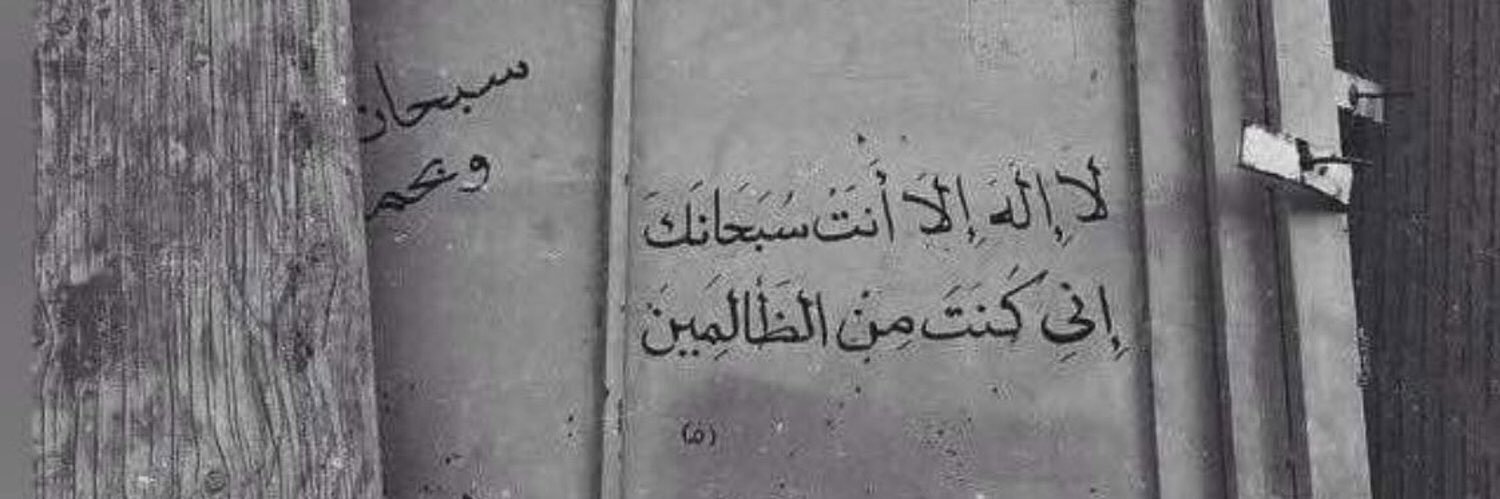 لَا إِلَهَ إِلَّا أَنتَ سُبَحَانَكَ
إِنِي كُنتَ مِنَ الظَالِمِينَ
(ص)
سبحان
وبحم